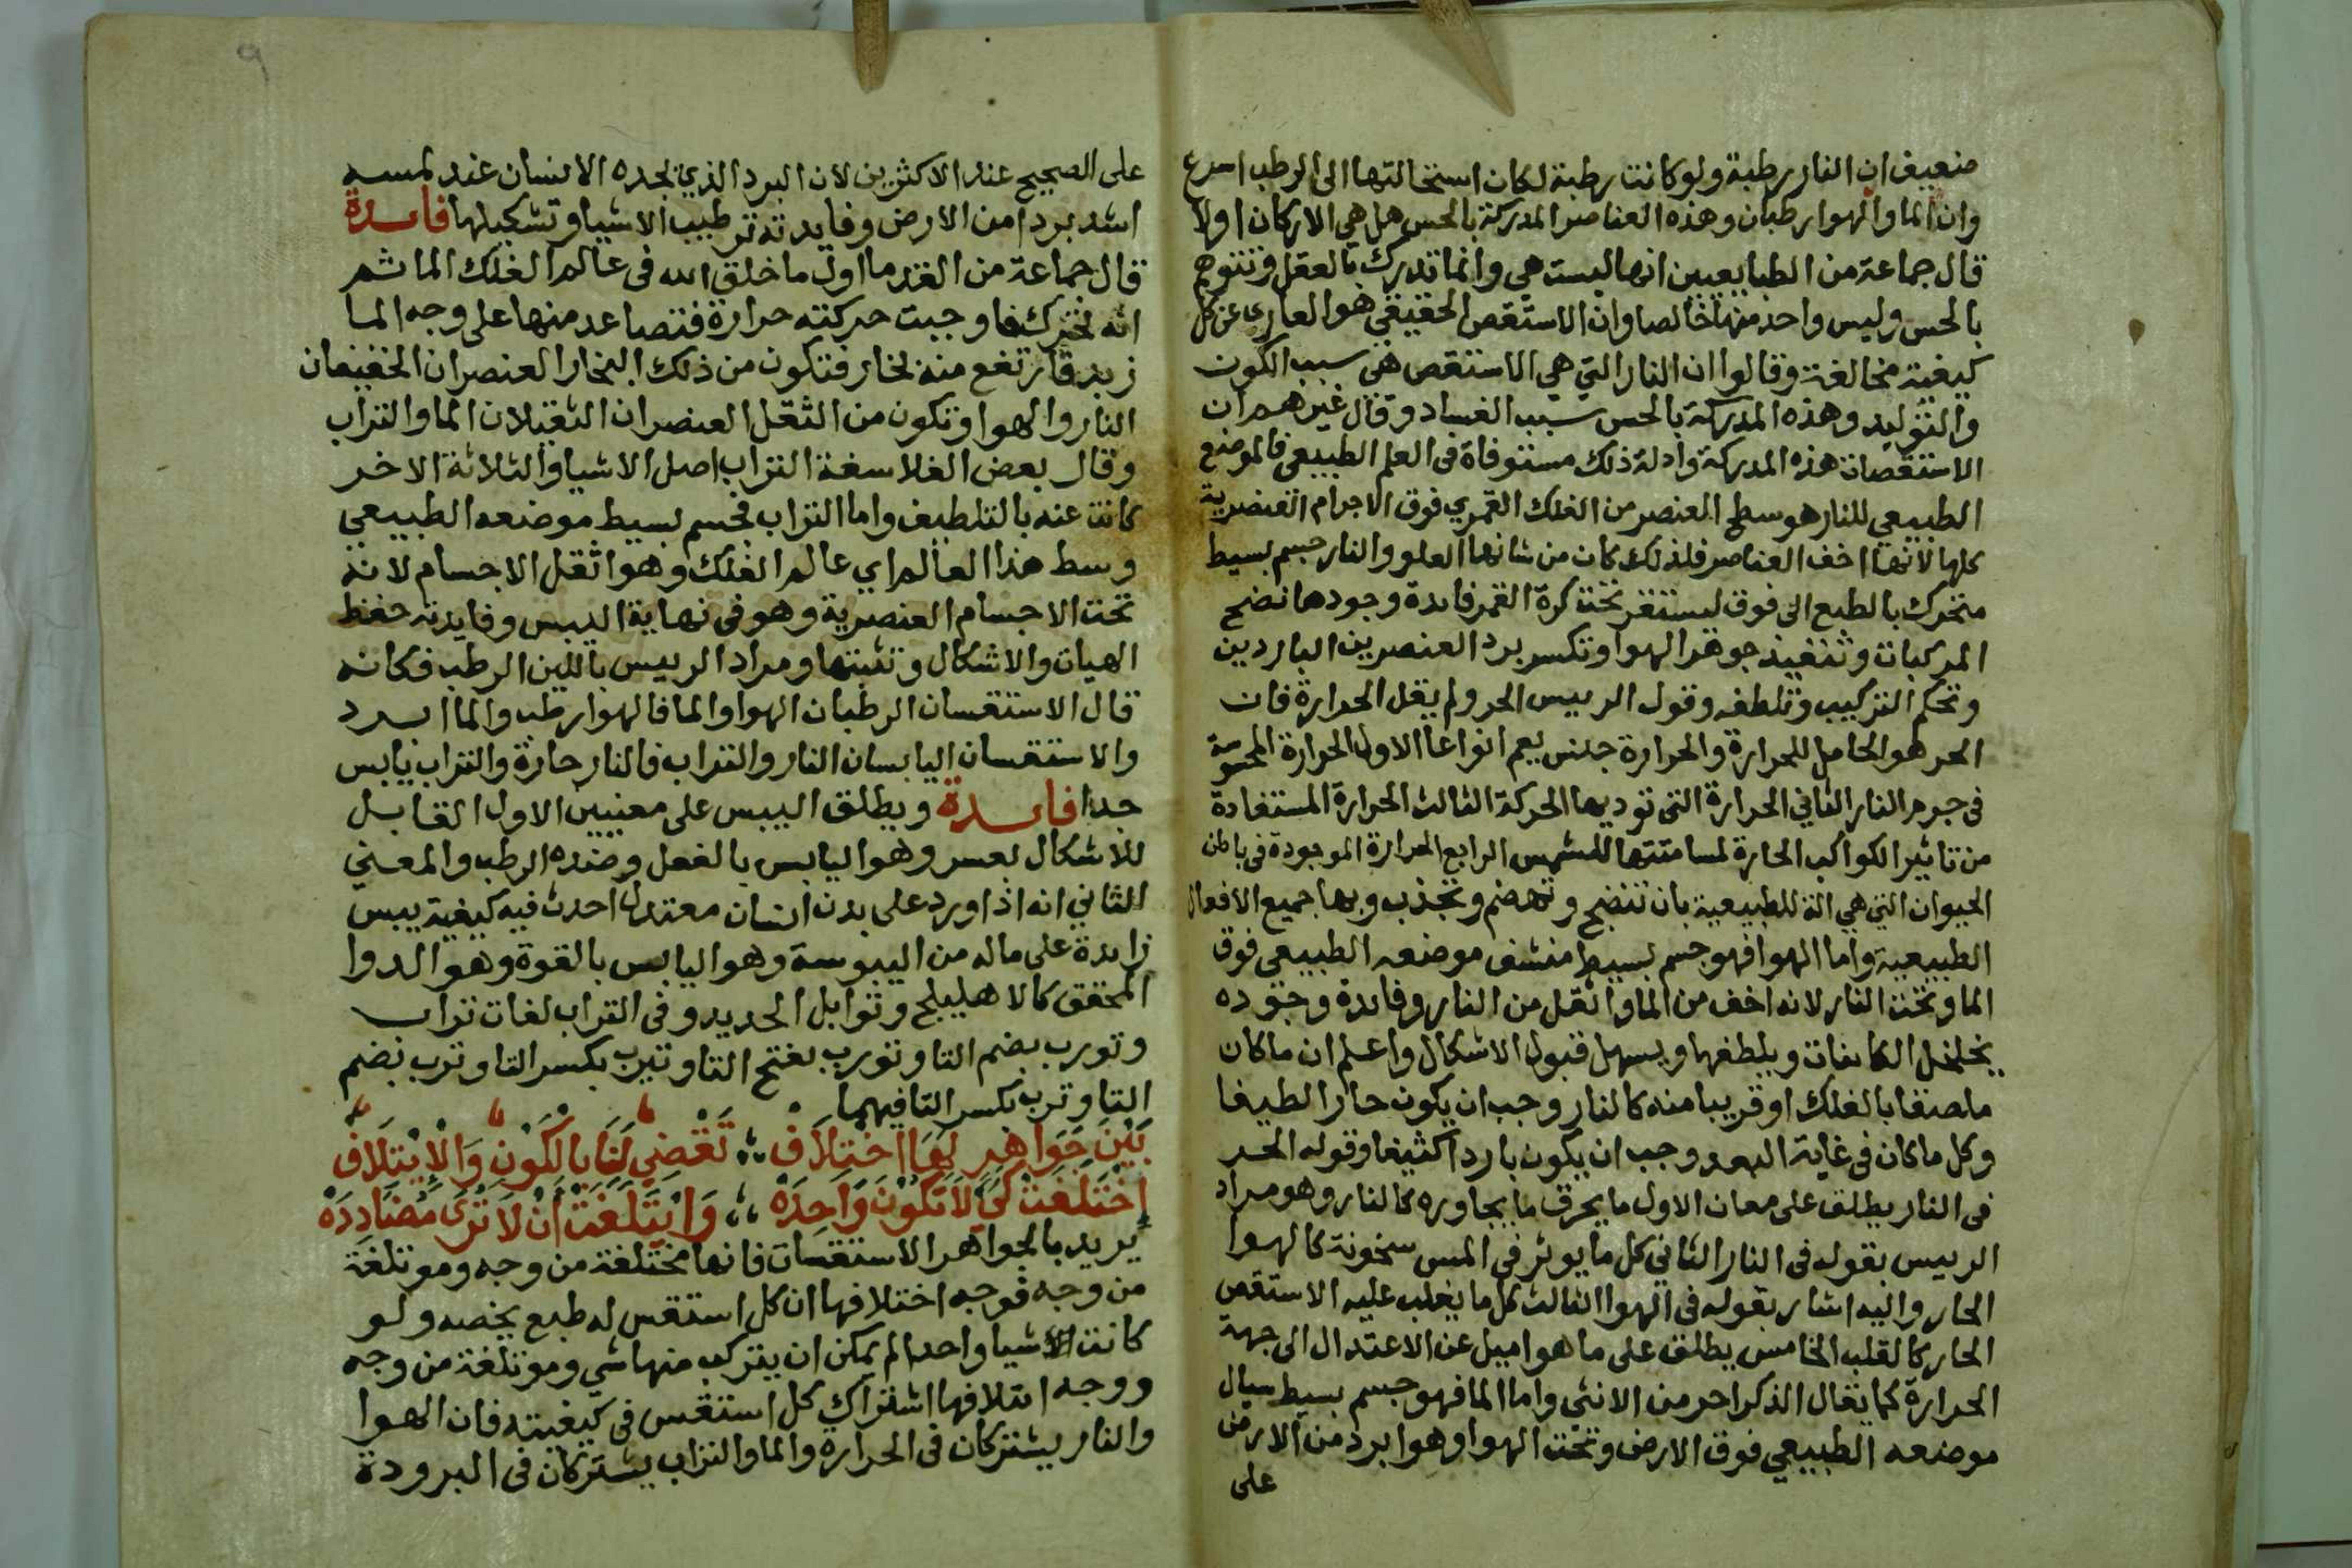 ضعيف ان النار رطبة ولو كانت رطبة لكان استحالتها الى الرطب اسرع
وان الما والهوا رطبان وهذه العناصر المدركة بالحس هل هي الاركان اولا
قال جماعة من الطبايعيين انها ليست هي وانما تدرك بالعقل وتتوهم
بالحس وليس واحد منها خالصا وان الاستقص الحقيقي هو العاري عن كل
كيفية مخالفة وقالوا ان النار التي هي الاستقص هي سبب الكون
والتوليد وهذه المدركة بالحس سبب الفساد وقال غيرهم ان
الاستقصات هذه المدركة وادلة ذلك مستوفاة في العلم الطبيعي فالموضع
الطبيعي للنار هو سطح المنصر من الفلك القمري فوق الاجرام العنصرية
كلها لانها اخف العناصر فلذلك كان من شانها العلو والنار جسم بسيط
متحرك بالطبع الى فوق ليستقر تحت كرة القمر فايدة وجودها نضج
المركبات وتنفيذ جوهر الهوا وتكسر برد العنصرين الباردين
وتحكم التركيب وتلطفه وقول الرييس الحر ولم يقل الحرارة فان
الحر هو الحامل للحرارة والحرارة جنس يعم انواعا الاول الحرارة المحسوسة
في جرم النار الثاني الحرارة التي توديها الحركة الثالث الحرارة المستفادة
من تاثير الكواكب الحارة لمسامتتها للشمس الرابع الحرارة الموجودة في باطن
الحيوان التي هي الة للطبيعية بان تنضج وتهضم وتجذب وبها جميع الافعال
الطبيعية واما الهوا فهو جسم بسيط منشف موضعه الطبيعي فوق
الما وتحت النار لانه اخف من الما واثقل من النار وفايدة وجوده
يخلخل الكاينات ويلطفها ويسهل قبول الاشكال واعلم ان ما كان
ملصقا بالفلك او قريبا منه كالنار وجب ان يكون حارا لطيفا
وكل ما كان في غاية البعد وجب ان يكون باردا كثيفا وقوله الحر
في النار يطلق على معان الاول ما يحرق ما يجاوره كالنار وهو مراد
الرييس بقوله في النار الثاني كل ما يوثر في المس سخونة كالهوا
الحار واليه اشار بقوله في الهوا الثالث كل ما يغلب عليه الاستقص
الحار كالقلب الخامس يطلق على ما هو اميل عن الاعتدال الى جهة
الحرارة كما يقال الذكر احر من الانثى واما الما فهو جسم بسيط سيال
موضعه الطبيعي فوق الارض وتحت الهوا وهو ابرد من الارض
على
على الصحيح عند الاكثرين لان البرد الذي يجده الانسان عند لمسه
اشد بردا من الارض وفايدته ترطيب الاشيا وتشكيلها فايدة
قال جماعة من القدما اول ما خلق الله في عالم الفلك الما ثم
انه تحرك فاوجبت حركته حرارة فتصاعد منها على وجه الما
زبد فارتفع منه بخار فتكون من ذلك البخار العنصران الخفيفان
النار والهوا وتكون من الثقل العنصران الثقيلان الما والتراب
وقال بعض الفلاسفة التراب اصل الاشيا والثلاثة الاخر
كانت عنه بالتلطيف واما التراب فجسم بسيط موضعه الطبيعي
وسط هذا العالم اي عالم الفلك وهو اثقل الاجسام لانه
تحت الاجسام العنصرية وهو في نهاية اليبس وفايدته حفظ
الهيات والاشكال وتثبتها ومراد الرييس باللين الرطب فكانه
قال الاستقسان الرطبان الهوا والما فالهوا رطب والما ابرد
والاستقسان اليابسان النار والتراب فالنار حارة والتراب يابس
جدا فايدة ويطلق اليبس على معنيين الاول القابل
للاشكال بعسر وهو اليابس بالفعل وضده الرطب والمعني
الثاني انه اذا ورد على بدن انسان معتدل احدث فيه كيفية يبس
زايدة على ماله من اليبوسة وهو اليابس بالقوة وهو الدوا
المحقق كالاهليلج وتوابل الحديد وفي التراب لغات تراب
وتورب بضم التا وتورب بفتح التا وتيرب بكسر التا وترب بضم
التا وترب بكسر التا فيهما
بَيْنَ جَوَاهِرٍ لَهَا اخْتِلَافْ ؛ تَقْضِي لَنَا بِالكَوْنِ وَالْاِيْتِلَافْ
اِخْتَلَفَتْ كَيْ لَا تَكُونَ وَاحِدَهْ ؛ وَايْتَلَفَتْ أَنْ لَا تَرَى مُضَادِدَهْ
يريد بالجواهر الاستقسات فانها مختلفة من وجه وموتلفة
من وجه فوجه اختلافها ان كل استقس له طبع يخصه ولو
كانت الاشيا واحدا لم يمكن ان يتركب منها شي وموتلفة من وجه
ووجه ايتلافها اشتراك كل استقس في كيفيته فان الهوا
والنار يشتركان في الحرارة والما والتراب يشتركان في البرودة